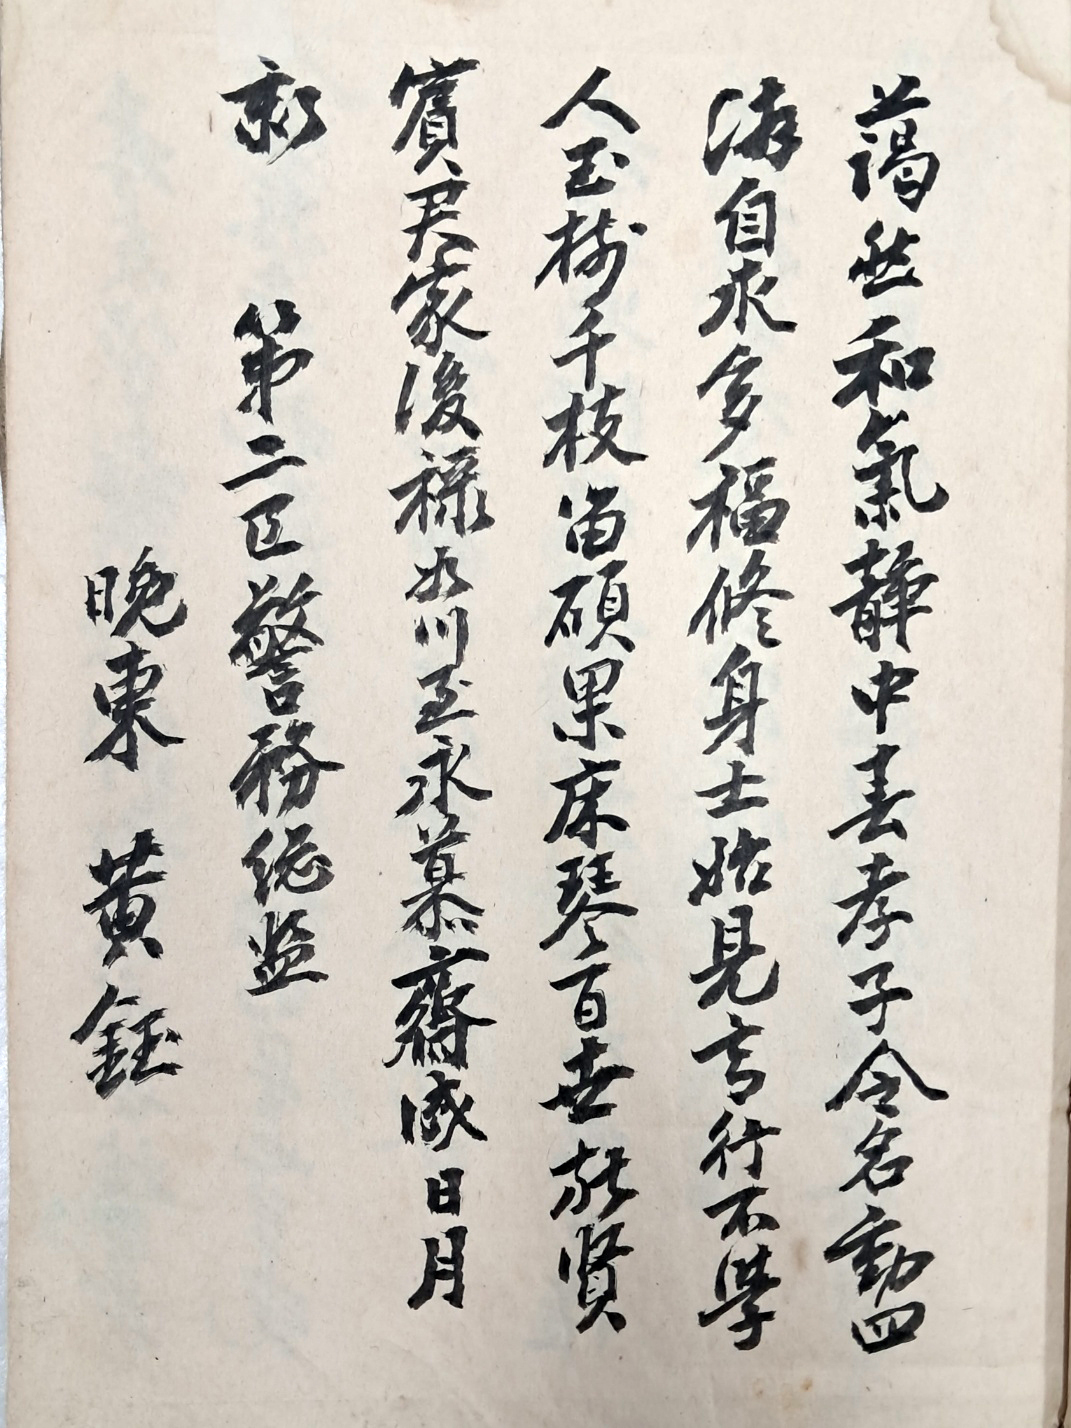 藹然和氣靜中春孝子令名動四
海自求多福修身士始見言行不學
人玉樹千枝留碩果床琴百世賢
賓君家後禄如川至永慕齋成日月
新　第二区警務総監
晚東　黄鈺